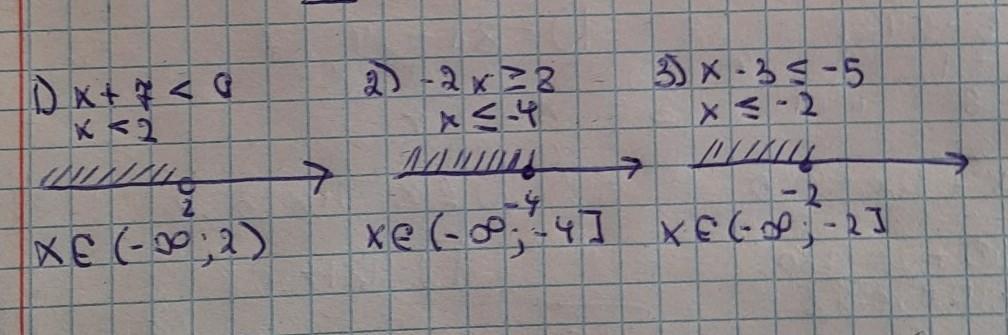 1) x + 7 < 9
x < 2
2
x ∈ (-∞; 2)
2) -2x ≥ 8
x ≤ -4
-4
x ∈ (-∞; -4]
3) x - 3 ≤ -5
x ≤ -2
-2
x ∈ (-∞; -2]